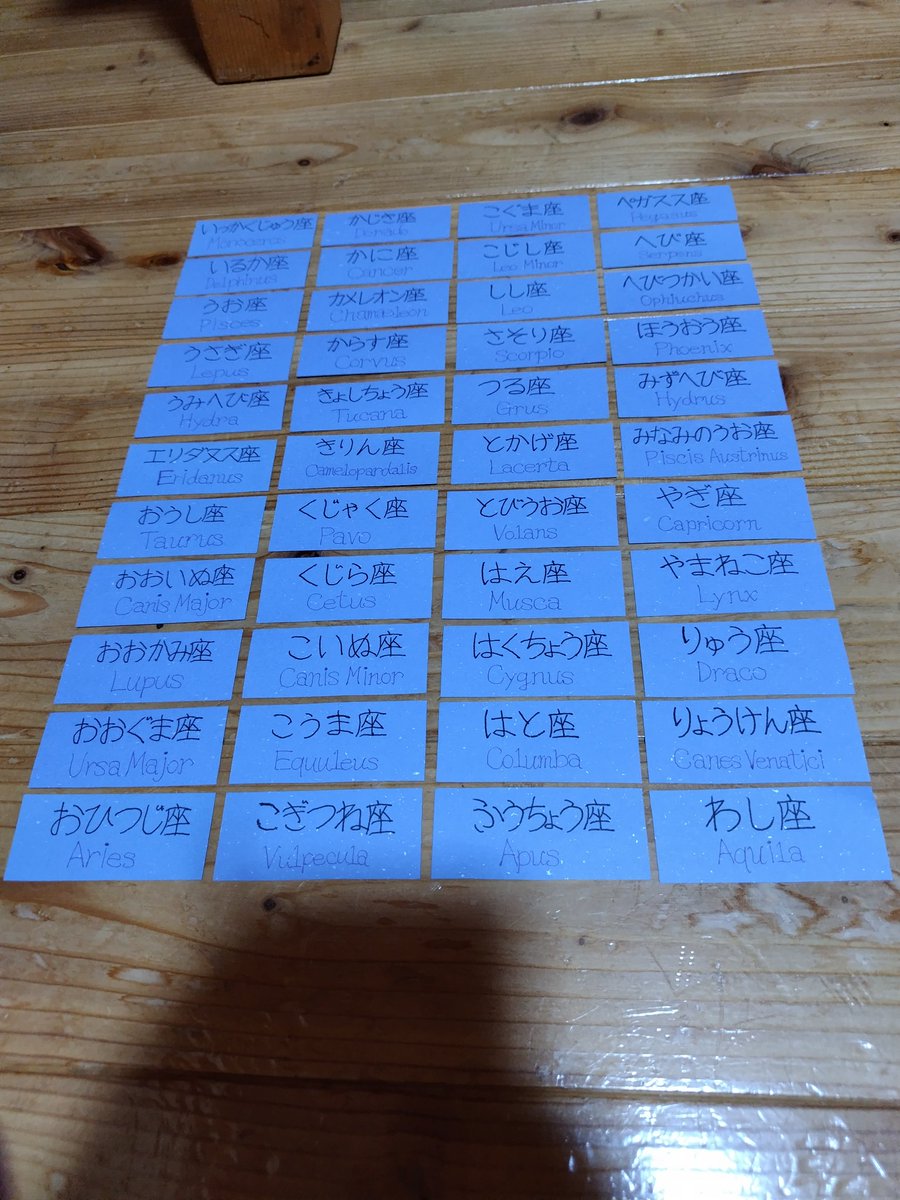 いっかくじゅう座
Monoceros
いるか座
Delphinus
うお座
Pisces
うさぎ座
Lepus
うみへび座
Hydra
エリダヌス座
Eridanus
おうし座
Taurus
おおいぬ座
Canis Major
おおかみ座
Lupus
おおぐま座
Ursa Major
おひつじ座
Aries
かじき座
Dorado
かに座
Cancer
カメレオン座
Chamaeleon
からす座
Corvus
きょしちょう座
Tucana
きりん座
Camelopardalis
くじゃく座
Pavo
くじら座
Cetus
こいぬ座
Canis Minor
こうま座
Equuleus
こぎつね座
Vulpecula
こぐま座
Ursa Minor
こじし座
Leo Minor
しし座
Leo
さそり座
Scorpio
つる座
Grus
とかげ座
Lacerta
とびうお座
Volans
はえ座
Musca
はくちょう座
Cygnus
はと座
Columba
ふうちょう座
Apus
ペガスス座
Pegasus
へび座
Serpens
へびつかい座
Ophiuchus
ほうおう座
Phoenix
みずへび座
Hydrus
みなみのうお座
Piscis Austrinus
やぎ座
Capricorn
やまねこ座
Lynx
りゅう座
Draco
りょうけん座
Canes Venatici
わし座
Aquila